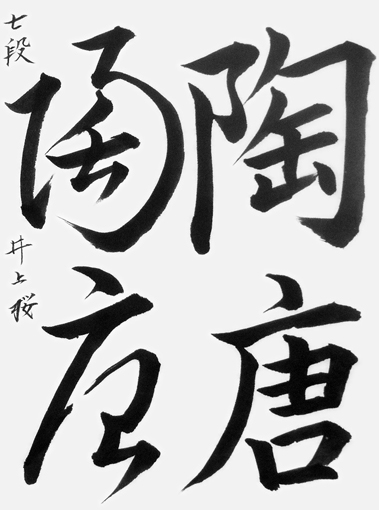 陶唐
陶唐
七段 井上桜